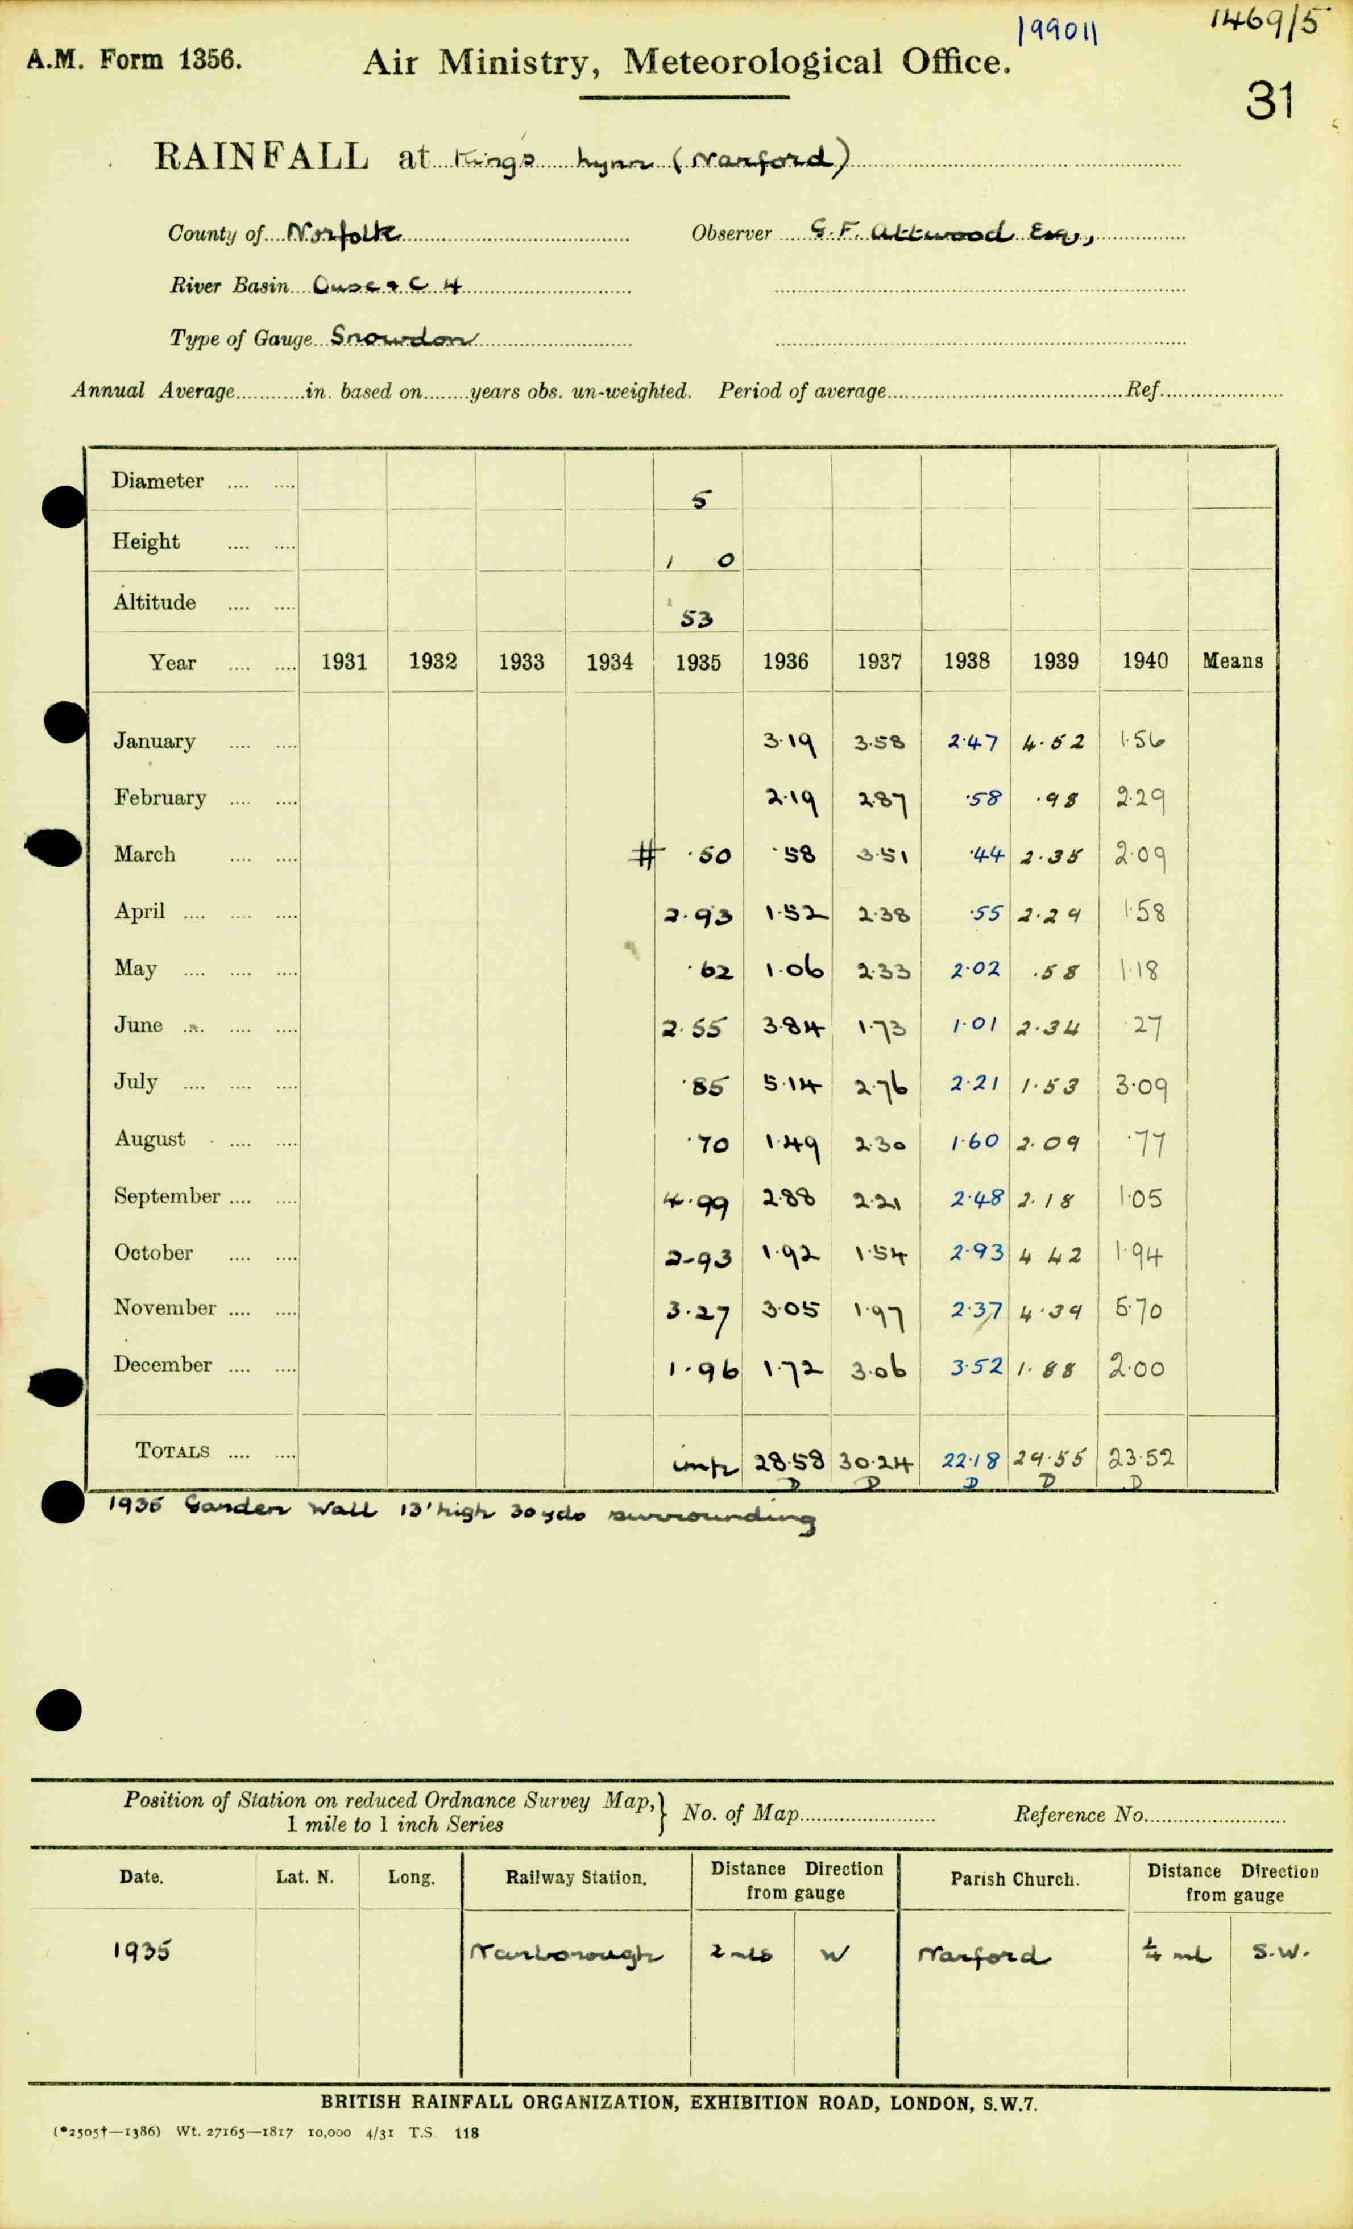 199011
1469/5
A.M. Form 1356. Air Ministry, Meteorological Office.
31
RAINFALL at King's Lynn (Narford)
County of Norfolk Observer G. F. Attwood Esq.,
River Basin Ouse & C 4
Type of Gauge Snowdon
Annual Average in. based on years obs. un-weighted. Period of average Ref.
Diameter .... .... 5
Height .... .... 1 0
Altitude .... .... 53
Year .... .... 1931 1932 1933 1934 1935 1936 1937 1938 1939 1940 Means
January .... .... 3.19 3.58 2.47 4.52 1.56
February .... .... 2.19 2.87 .58 .98 2.29
March .... .... # .50 .58 3.51 .44 2.35 2.09
April .... .... .... 2.93 1.52 2.38 .55 2.29 1.58
May .... .... .... .62 1.06 2.33 2.02 .58 1.18
June .... .... .... 2.55 3.84 1.73 1.01 2.34 .27
July .... .... .... .85 5.14 2.76 2.21 1.53 3.09
August .... .... .70 1.49 2.30 1.60 2.09 .77
September .... .... 4.99 2.88 2.21 2.48 2.18 1.05
October .... .... 2.93 1.92 1.54 2.93 4 42 1.94
November .... .... 3.27 3.05 1.97 2.37 4.39 5.70
December .... .... 1.96 1.72 3.06 3.52 1.88 2.00
TOTALS .... .... imp 28.58 30.24 22.18 29.55 23.52
D D D D D
1935 Garden Wall 13' high 30 yds surrounding
Position of Station on reduced Ordnance Survey Map,} No. of Map Reference No.
1 mile to 1 inch Series
Date. Lat. N. Long. Railway Station. Distance Direction from gauge Parish Church. Distance Direction from gauge
1935 Narborough 2 mls W Narford ¼ ml S.W.
BRITISH RAINFALL ORGANIZATION, EXHIBITION ROAD, LONDON, S.W.7.
(*2505†—1386) Wt. 27165—1817 10,000 4/31 T.S. 118